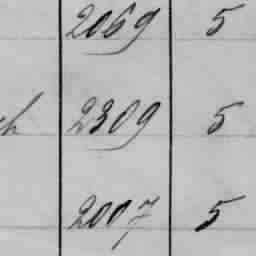 2069 5
2309 5
2007 5